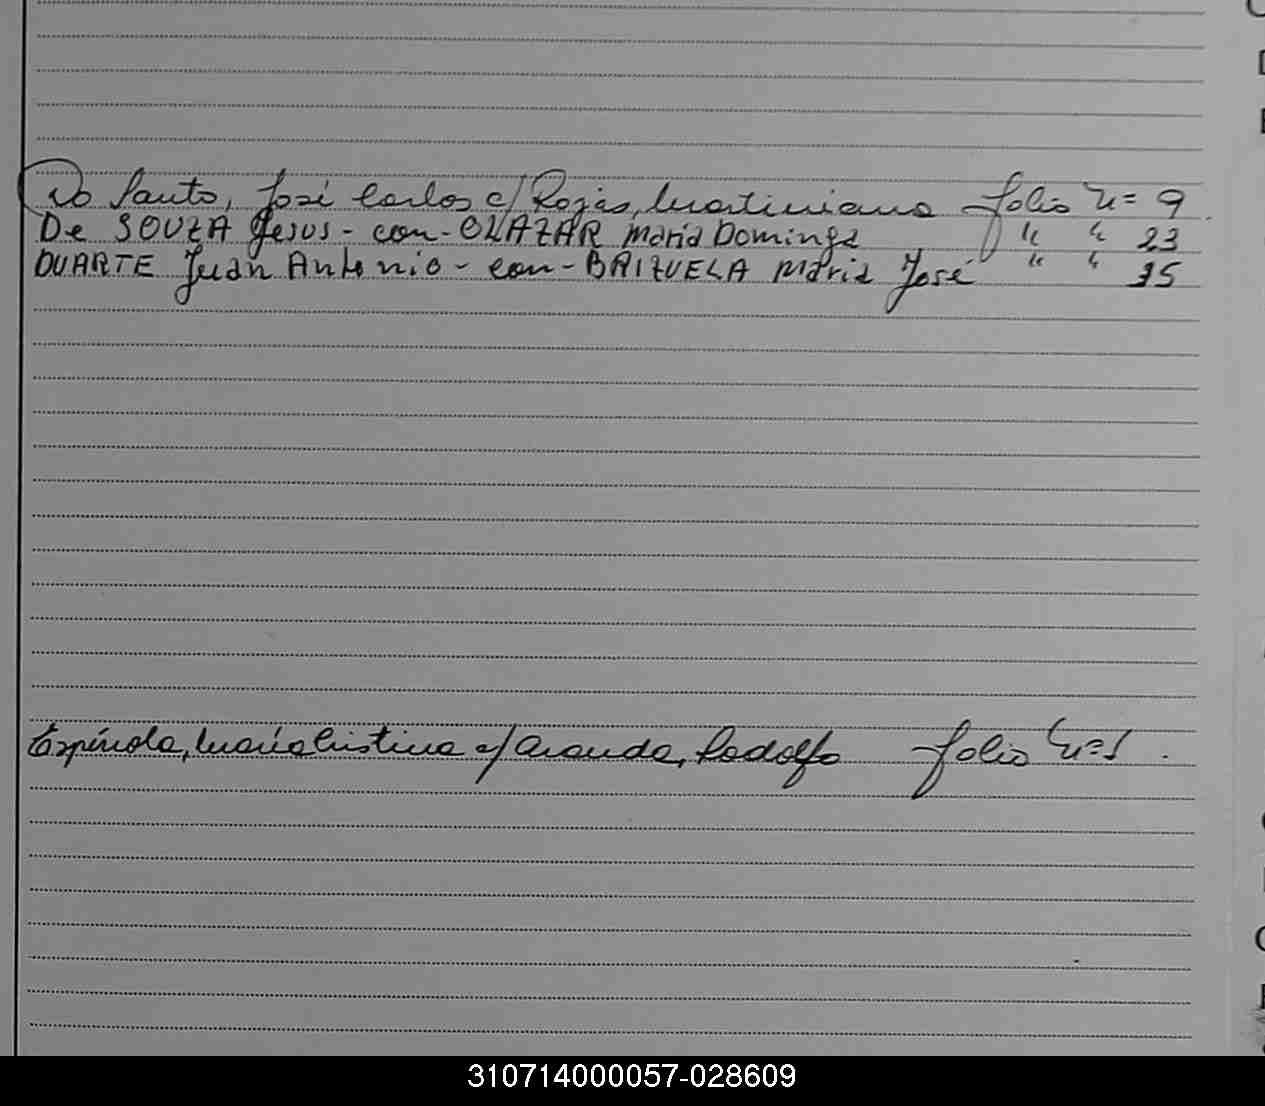 Do Santo, José Carlos c/ Rojas, Martiniana folio N= 9
De SOUZA Jesus - con - OLAZAR Maria Dominga " " 23
DUARTE Juan Antonio - con - BRIZUELA Maria José " " 35
Espínola, María Cristina c/ Aranda, Rodolfo folio Nº 1.
310714000057-028609